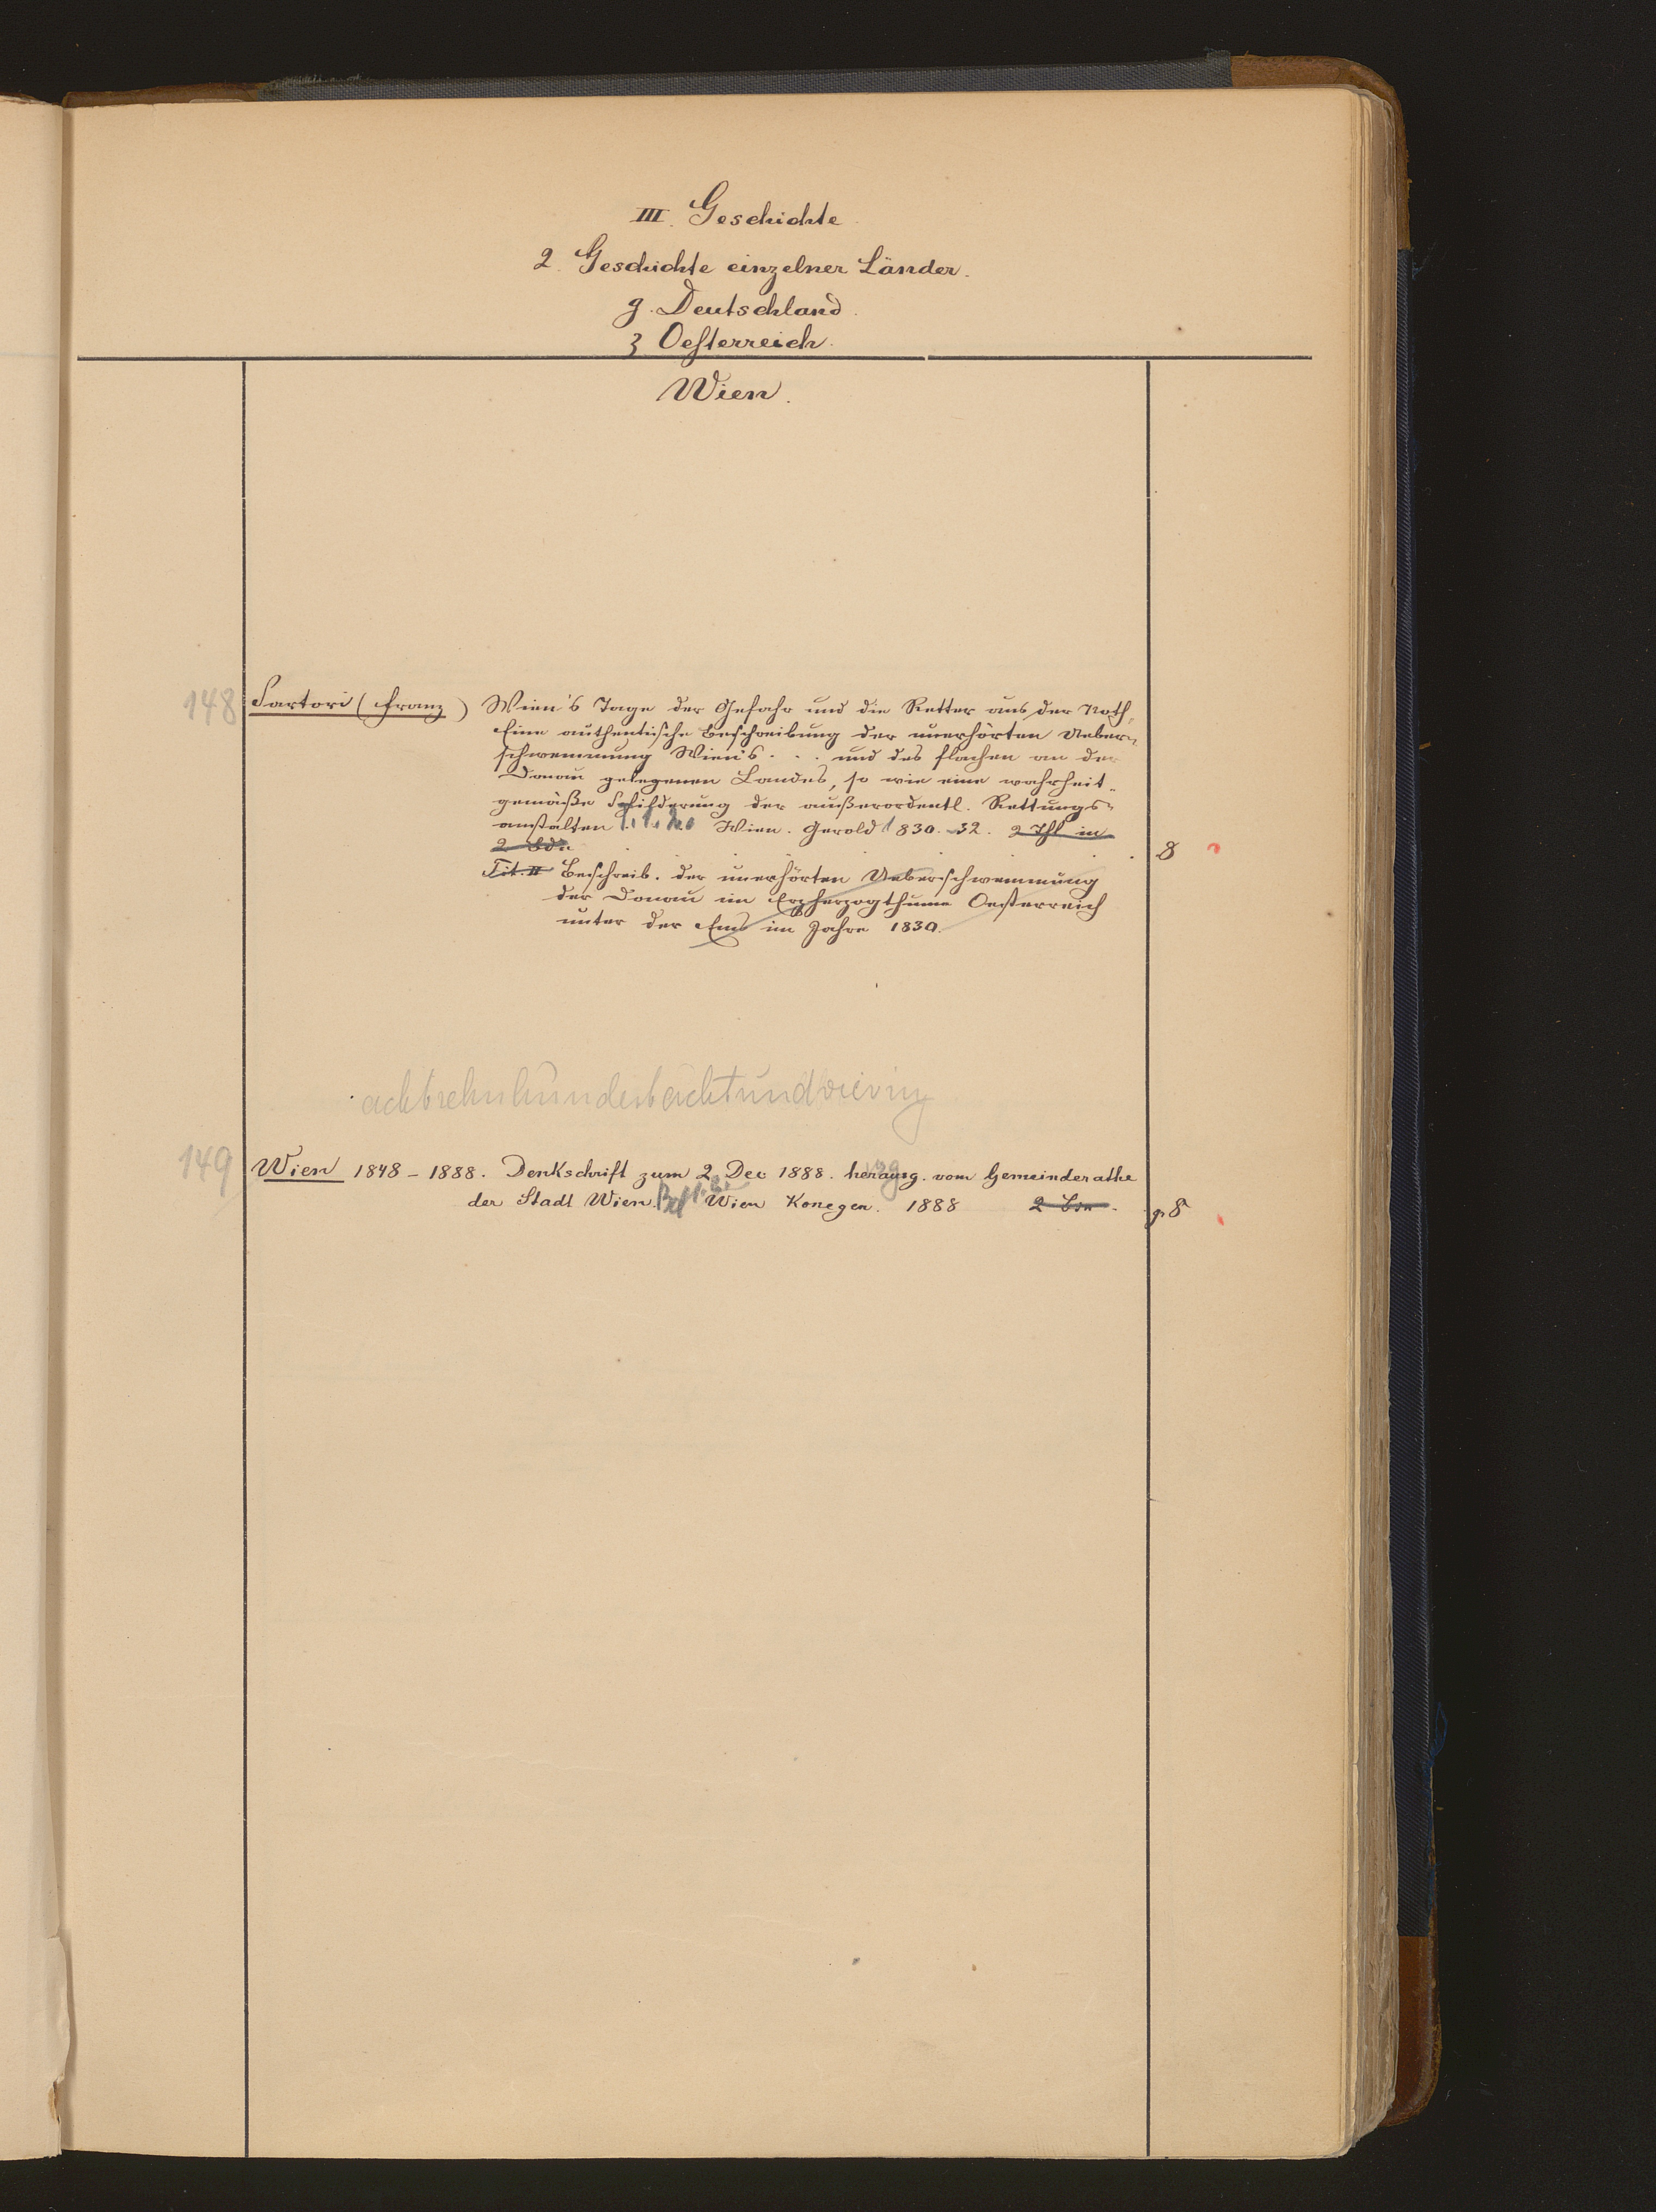 III. Geschichte
2. Geschichte einzelner Länder.
g. Deutschland.
ʒ Oesterreich.
Wien.
148 Sartori (Franz) Wien's Tage der Gefahr und die Retter aus der Noth,
Eine authentische Beschreibung der unerhörten Ueber=
schwemmung Wiens . . . und des flachen an der
Donau gelegenen Landes, so wie eine wahrheit=
gemäße Schilderung der außerordentl. Rettungs=
anstalten Wien. Gerold 1830. -32. 2 Thl in
2 Bdn 8
Tit. II Beschreib. der unerhörten Ueberschwemmung
der Donau im Erzherzogthume Oesterreich
unter der Ens im Jahre 1830.
achtzehnhundertachtundvierzig
149 Wien 1848 - 1888. Denkschrift zum 2. Dec 1888. herausg. vom Gemeinderathe
der Stadt Wien. Bd 1. 2. Wien Konegen. 1888 2 Bde. gr 8